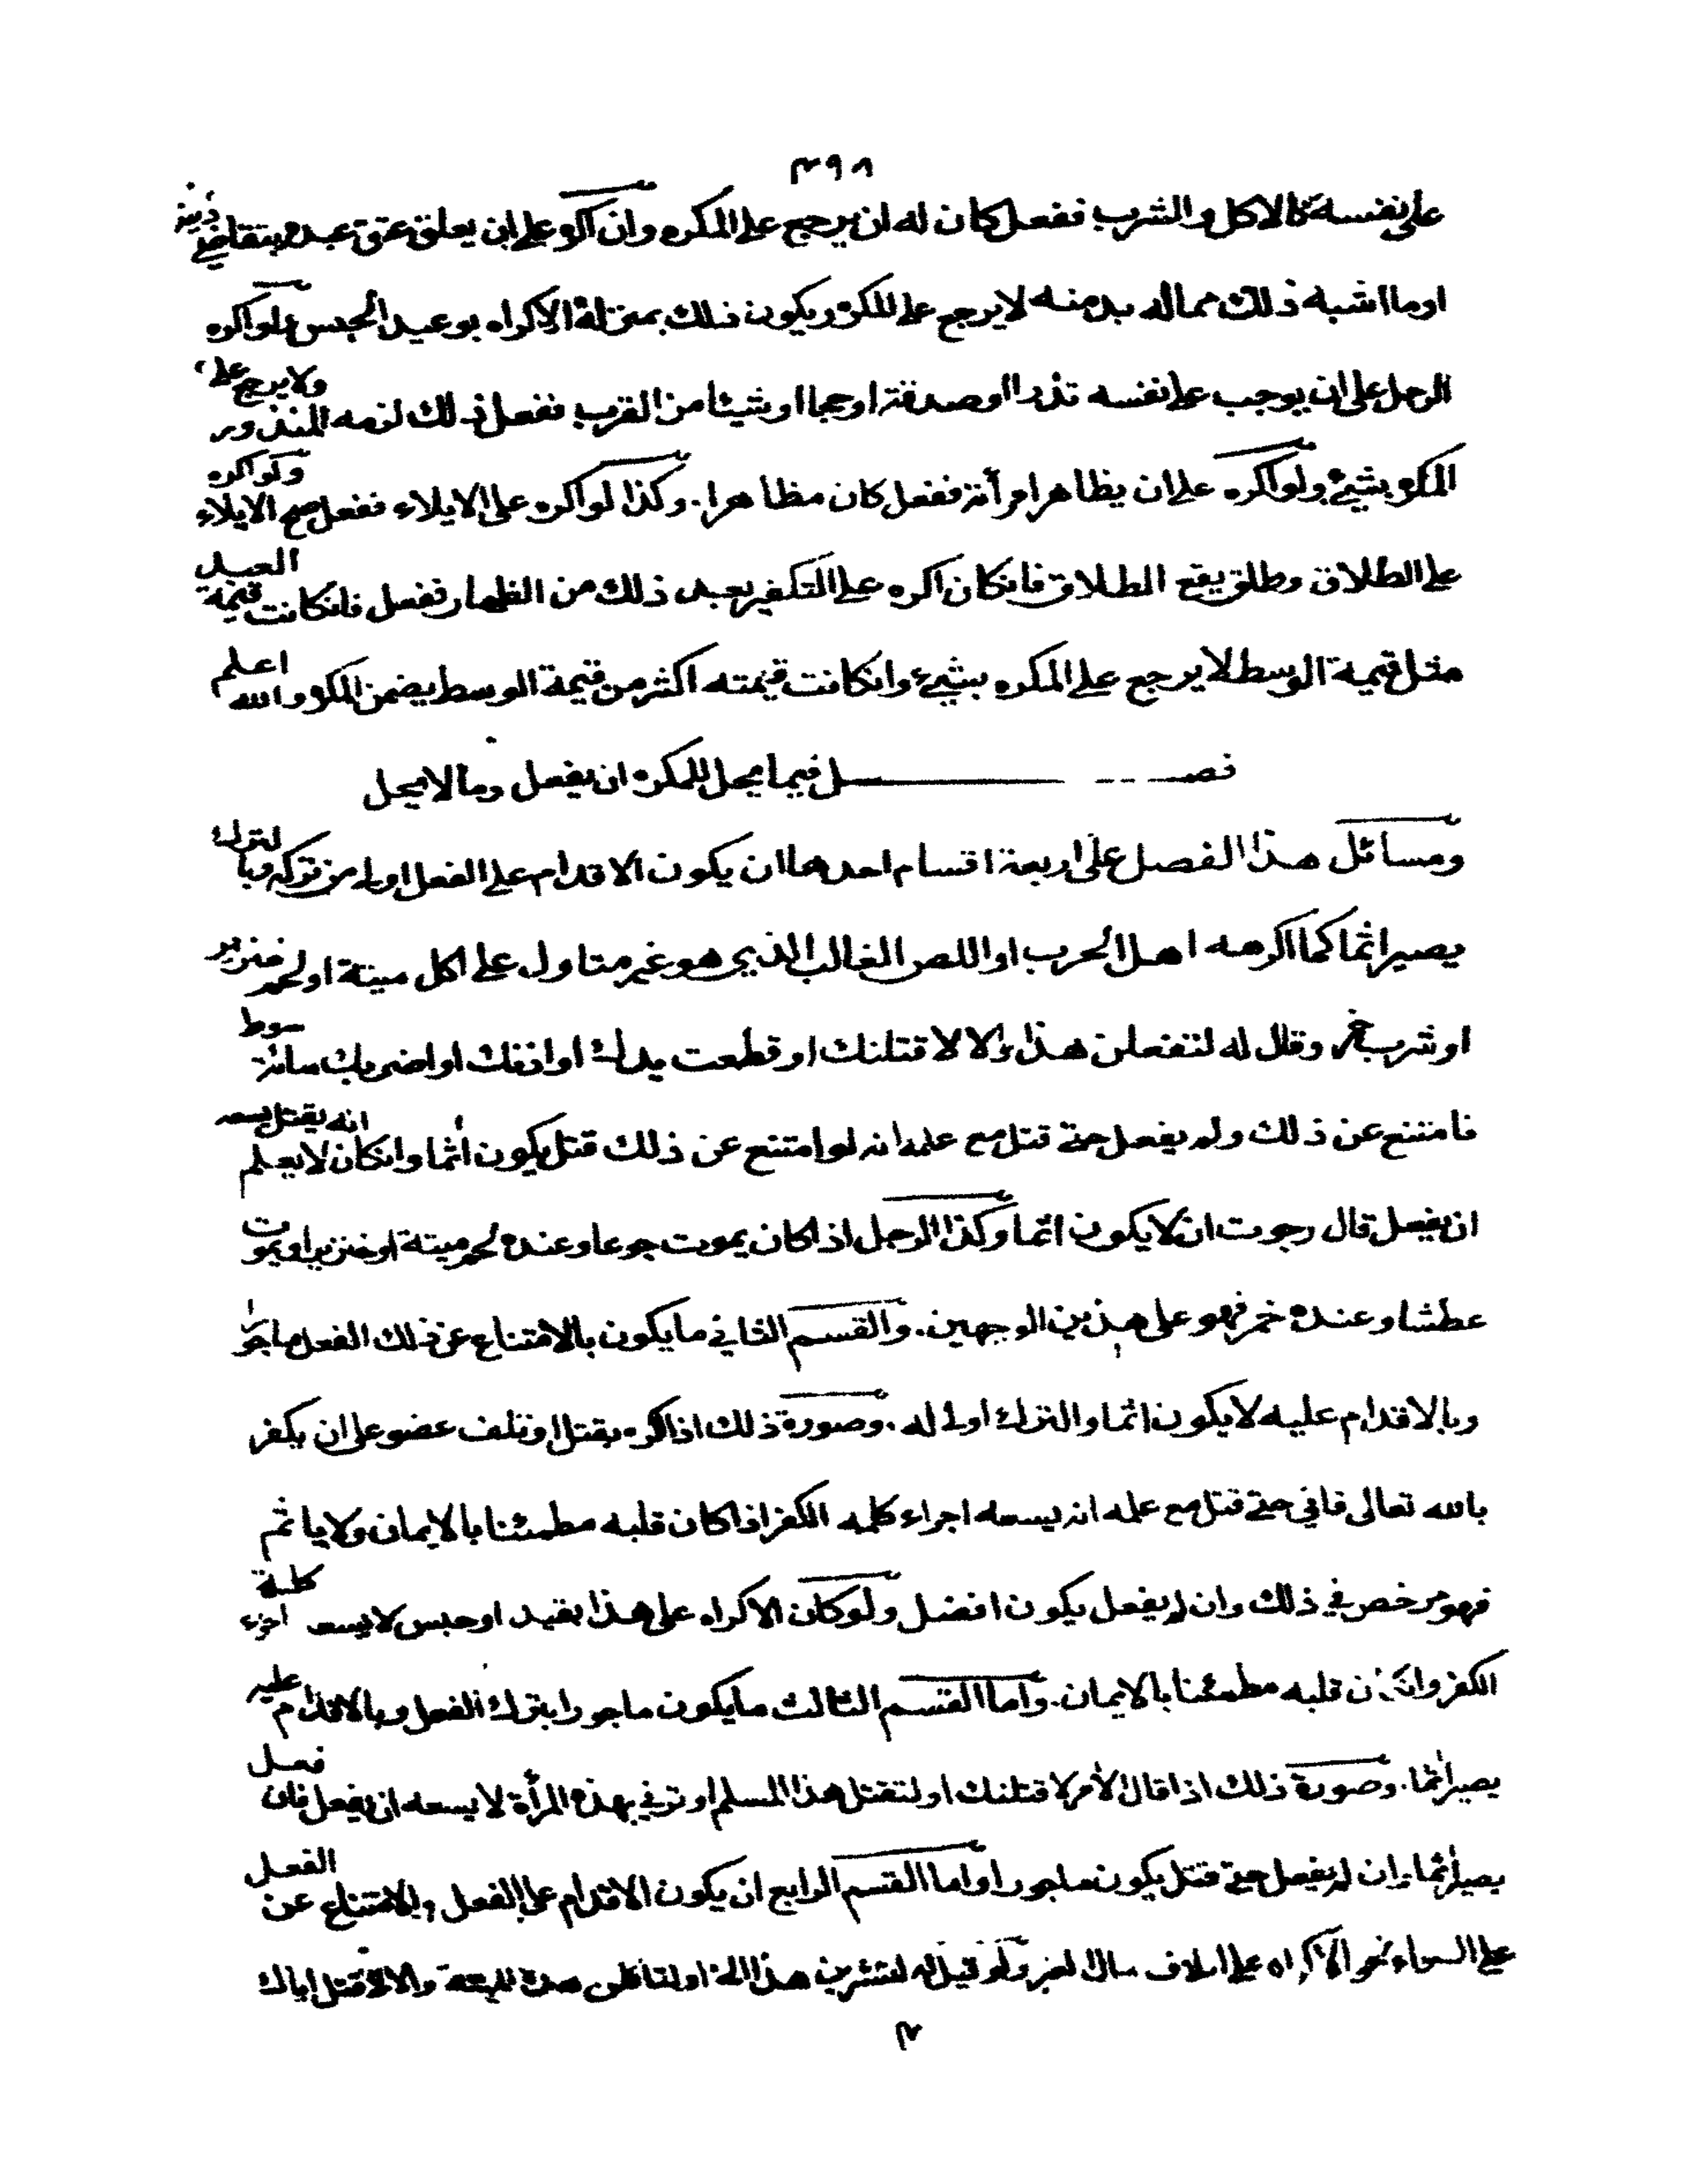 ٣٩٨
على نفسه كالاكل والشرب ففعل كان له ان يرجع على المكره وان اكره على ان يعلق عتق عبده بتقاضي دينه
او ما اشبه ذلك مما له بد منه لا يرجع على المكره ويكون ذلك بمنزلة الاكراه بوعيد الحبس ولو اكره
الرجل على ان يوجب على نفسه نذرا او صدقة او حجا او شيئا من القرب ففعل ذلك لزمه المنذور ولا يرجع على
المكره بشيء ولو اكره على ان يظاهر امرأته ففعل كان مظاهرا. وكذا لو اكره على الايلاء ففعل صح الايلاء ولو اكره
على الطلاق وطلق يقع الطلاق فان كان اكره على التكفير بعبد ذلك من الظهار ففعل فان كانت قيمة العبد
مثل قيمة الوسط لا يرجع على المكره بشيء وان كانت قيمته اكثر من قيمة الوسط يضمن المكره والله اعلم
فصل فيما يحل للمكره ان يفعل وما لا يحل
ومسائل هذا الفصل على اربعة اقسام احدها ان يكون الاقدام على الفعل اولى من تركه وبالترك
يصير اثما كما اكرهه اهل الحرب او اللص الغالب الذي هو غير متاول على اكل ميتة او لحم خنزير
او شرب خمر وقال له لتفعلن هذا والا لاقتلنك او قطعت يدك او اضربك مائة سوط
فامتنع عن ذلك ولم يفعل حتى قتل مع علمه انه لو امتنع عن ذلك قتل يكون اثما وان كان لا يعلم انه يقتل يسعه
ان يفعل قال رجوت ان لا يكون اثما وكذا الرجل اذا كان يموت جوعا وعنده لحم ميتة او خنزير او يموت
عطشا وعنده خمر فهو على هذين الوجهين. والقسم الثاني ما يكون بالامتناع عن ذلك الفعل ماجورا
وبالاقدام عليه لا يكون اثما والترك اولى له. وصورة ذلك اذا اكره بقتل او تلف عضو على ان يكفر
بالله تعالى فابى حتى قتل مع علمه انه يسعه اجراء كلمه الكفر اذا كان قلبه مطمئنا بالايمان ولا ياثم
فهو مرخص في ذلك وان لم يفعل يكون افضل ولو كان الاكراه على هذا بقيد او حبس لا يسعه اجراء كلمة
الكفر وان كان قلبه مطمئنا بالايمان. واما القسم الثالث ما يكون ماجورا بترك الفعل وبالاقدام عليه
يصير اثما. وصورة ذلك اذا قال الآمر لاقتلنك او لتقتل هذا المسلم او تزني بهذه المرأة لا يسعه ان يفعل فان فعل
يصير اثما وان لم يفعل حتى قتل يكون ماجورا واما القسم الرابع ان يكون الاقدام على الفعل والامتناع عن الفعل
على السواء نحو الاكراه على اتلاف مال الغير ولو قيل له لتشربن هذا او لتاكلن هذه الميتة والا لاقتل اباك